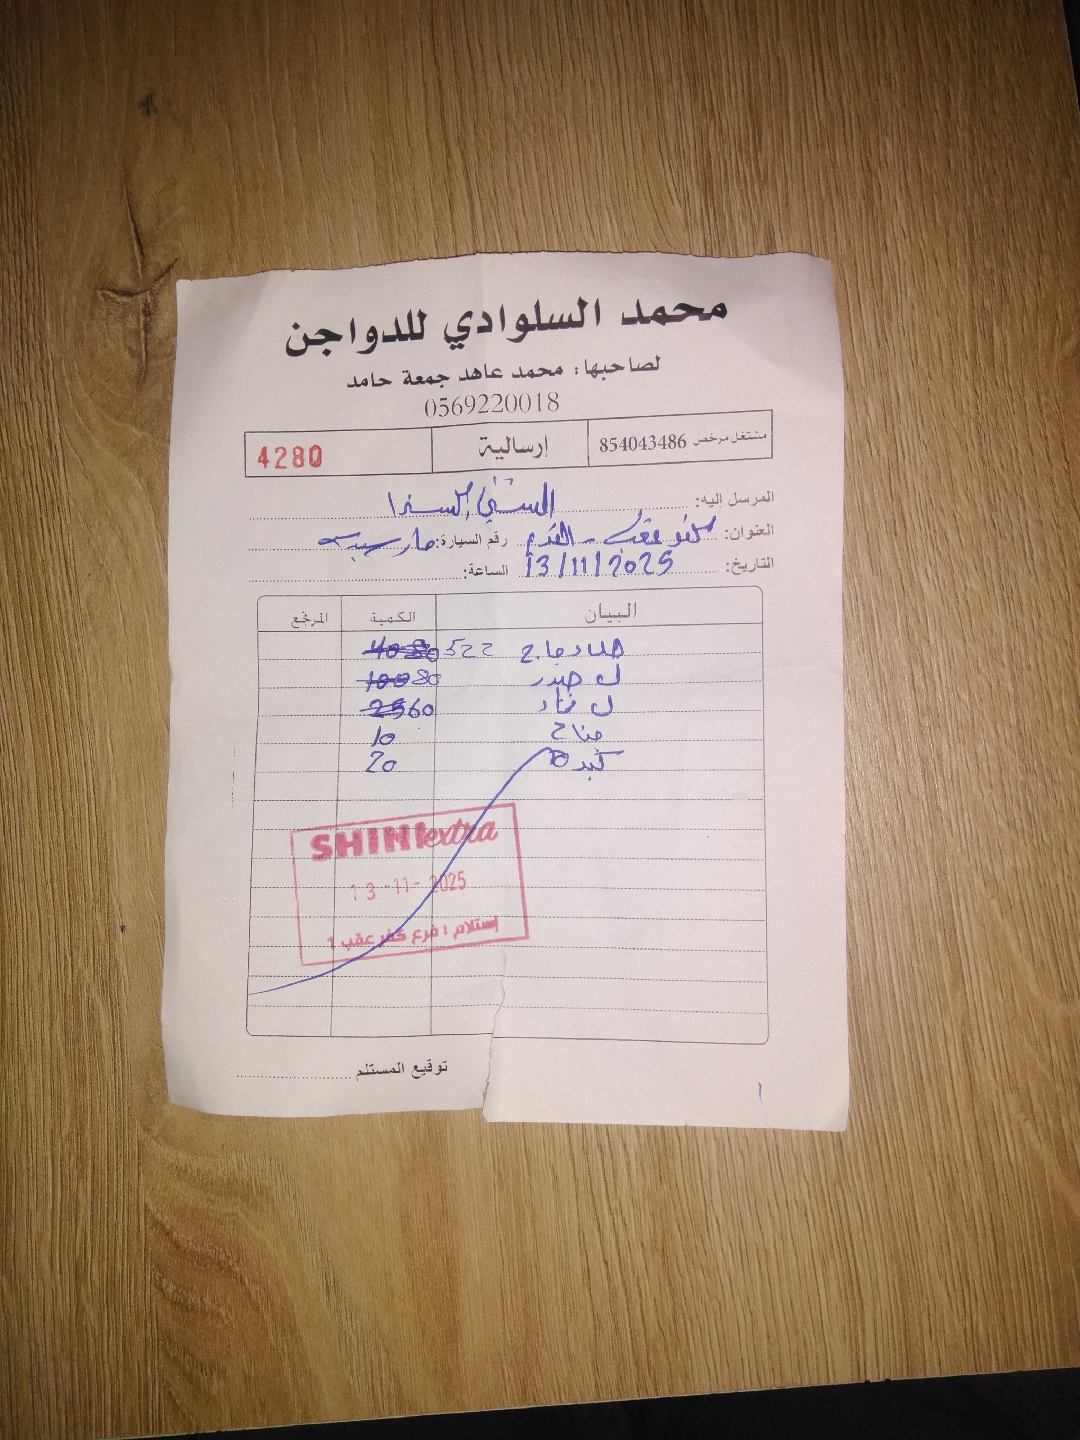 محمد السلوادي للدواجن
لصاحبها: محمد عاهد جمعة حامد
0569220018
مشتغل مرخص 854043486 إرسالية 4280
المرسل إليه: الشني إكسترا
العنوان: كفر عقب - القدم رقم السيارة:
التاريخ: 13/11/2025 الساعة:
البيان الكمية المرتجع
دجاج 522 80
ل صدر 100 80
ل فخاد 25 60
جناح 10
كبده 20
SHINI extra
13-11-2025
إستلام : فرع كفر عقب 1
توقيع المستلم